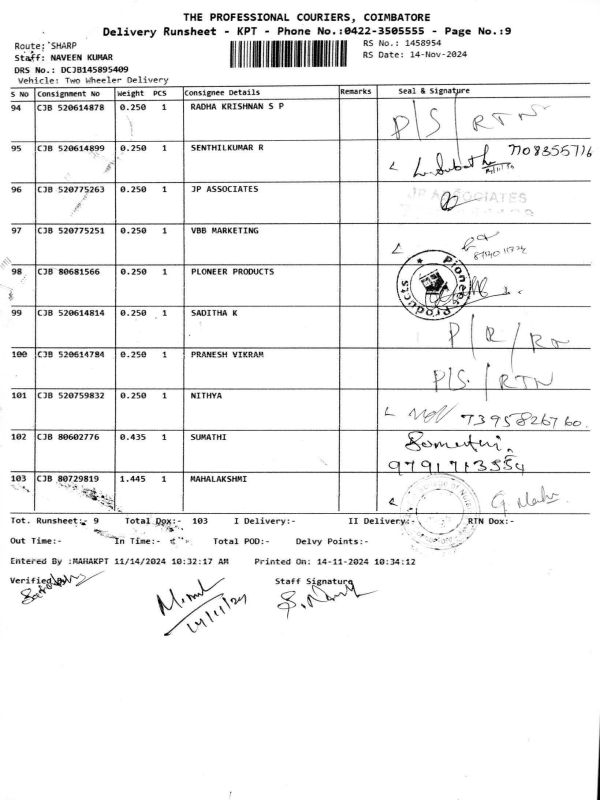 THE PROFESSIONAL COURIERS, COIMBATORE
Delivery Runsheet - KPT - Phone No.:0422-3505555 - Page No.:9
Route: SHARP
Staff: NAVEEN KUMAR
DRS No.: DCJB145895409
Vehicle: Two Wheeler Delivery
RS No.: 1458954
RS Date: 14-Nov-2024
S No Consignment No Weight PCS Consignee Details Remarks Seal & Signature
94 CJB 520614878 0.250 1 RADHA KRISHNAN S P P/S/RTN
95 CJB 520614899 0.250 1 SENTHILKUMAR R 7708355716
96 CJB 520775263 0.250 1 JP ASSOCIATES JP ASSOCIATES
97 CJB 520775251 0.250 1 VBB MARKETING
98 CJB 80681566 0.250 1 PLONEER PRODUCTS Pioneer Products
99 CJB 520614814 0.250 1 SADITHA K P/R/RN
100 CJB 520614784 0.250 1 PRANESH VIKRAM P/S/RTN
101 CJB 520759832 0.250 1 NITHYA 7395826760.
102 CJB 80602776 0.435 1 SUMATHI Sumathi.
9791713554
103 CJB 80729819 1.445 1 MAHALAKSHMI
Tot. Runsheet:- 9 Total Dox:- 103 I Delivery:- II Delivery:- RTN Dox:-
Out Time:- In Time:- Total POD:- Delvy Points:-
Entered By :MAHAKPT 11/14/2024 10:32:17 AM Printed On: 14-11-2024 10:34:12
Verified Staff Signature
14/11/24